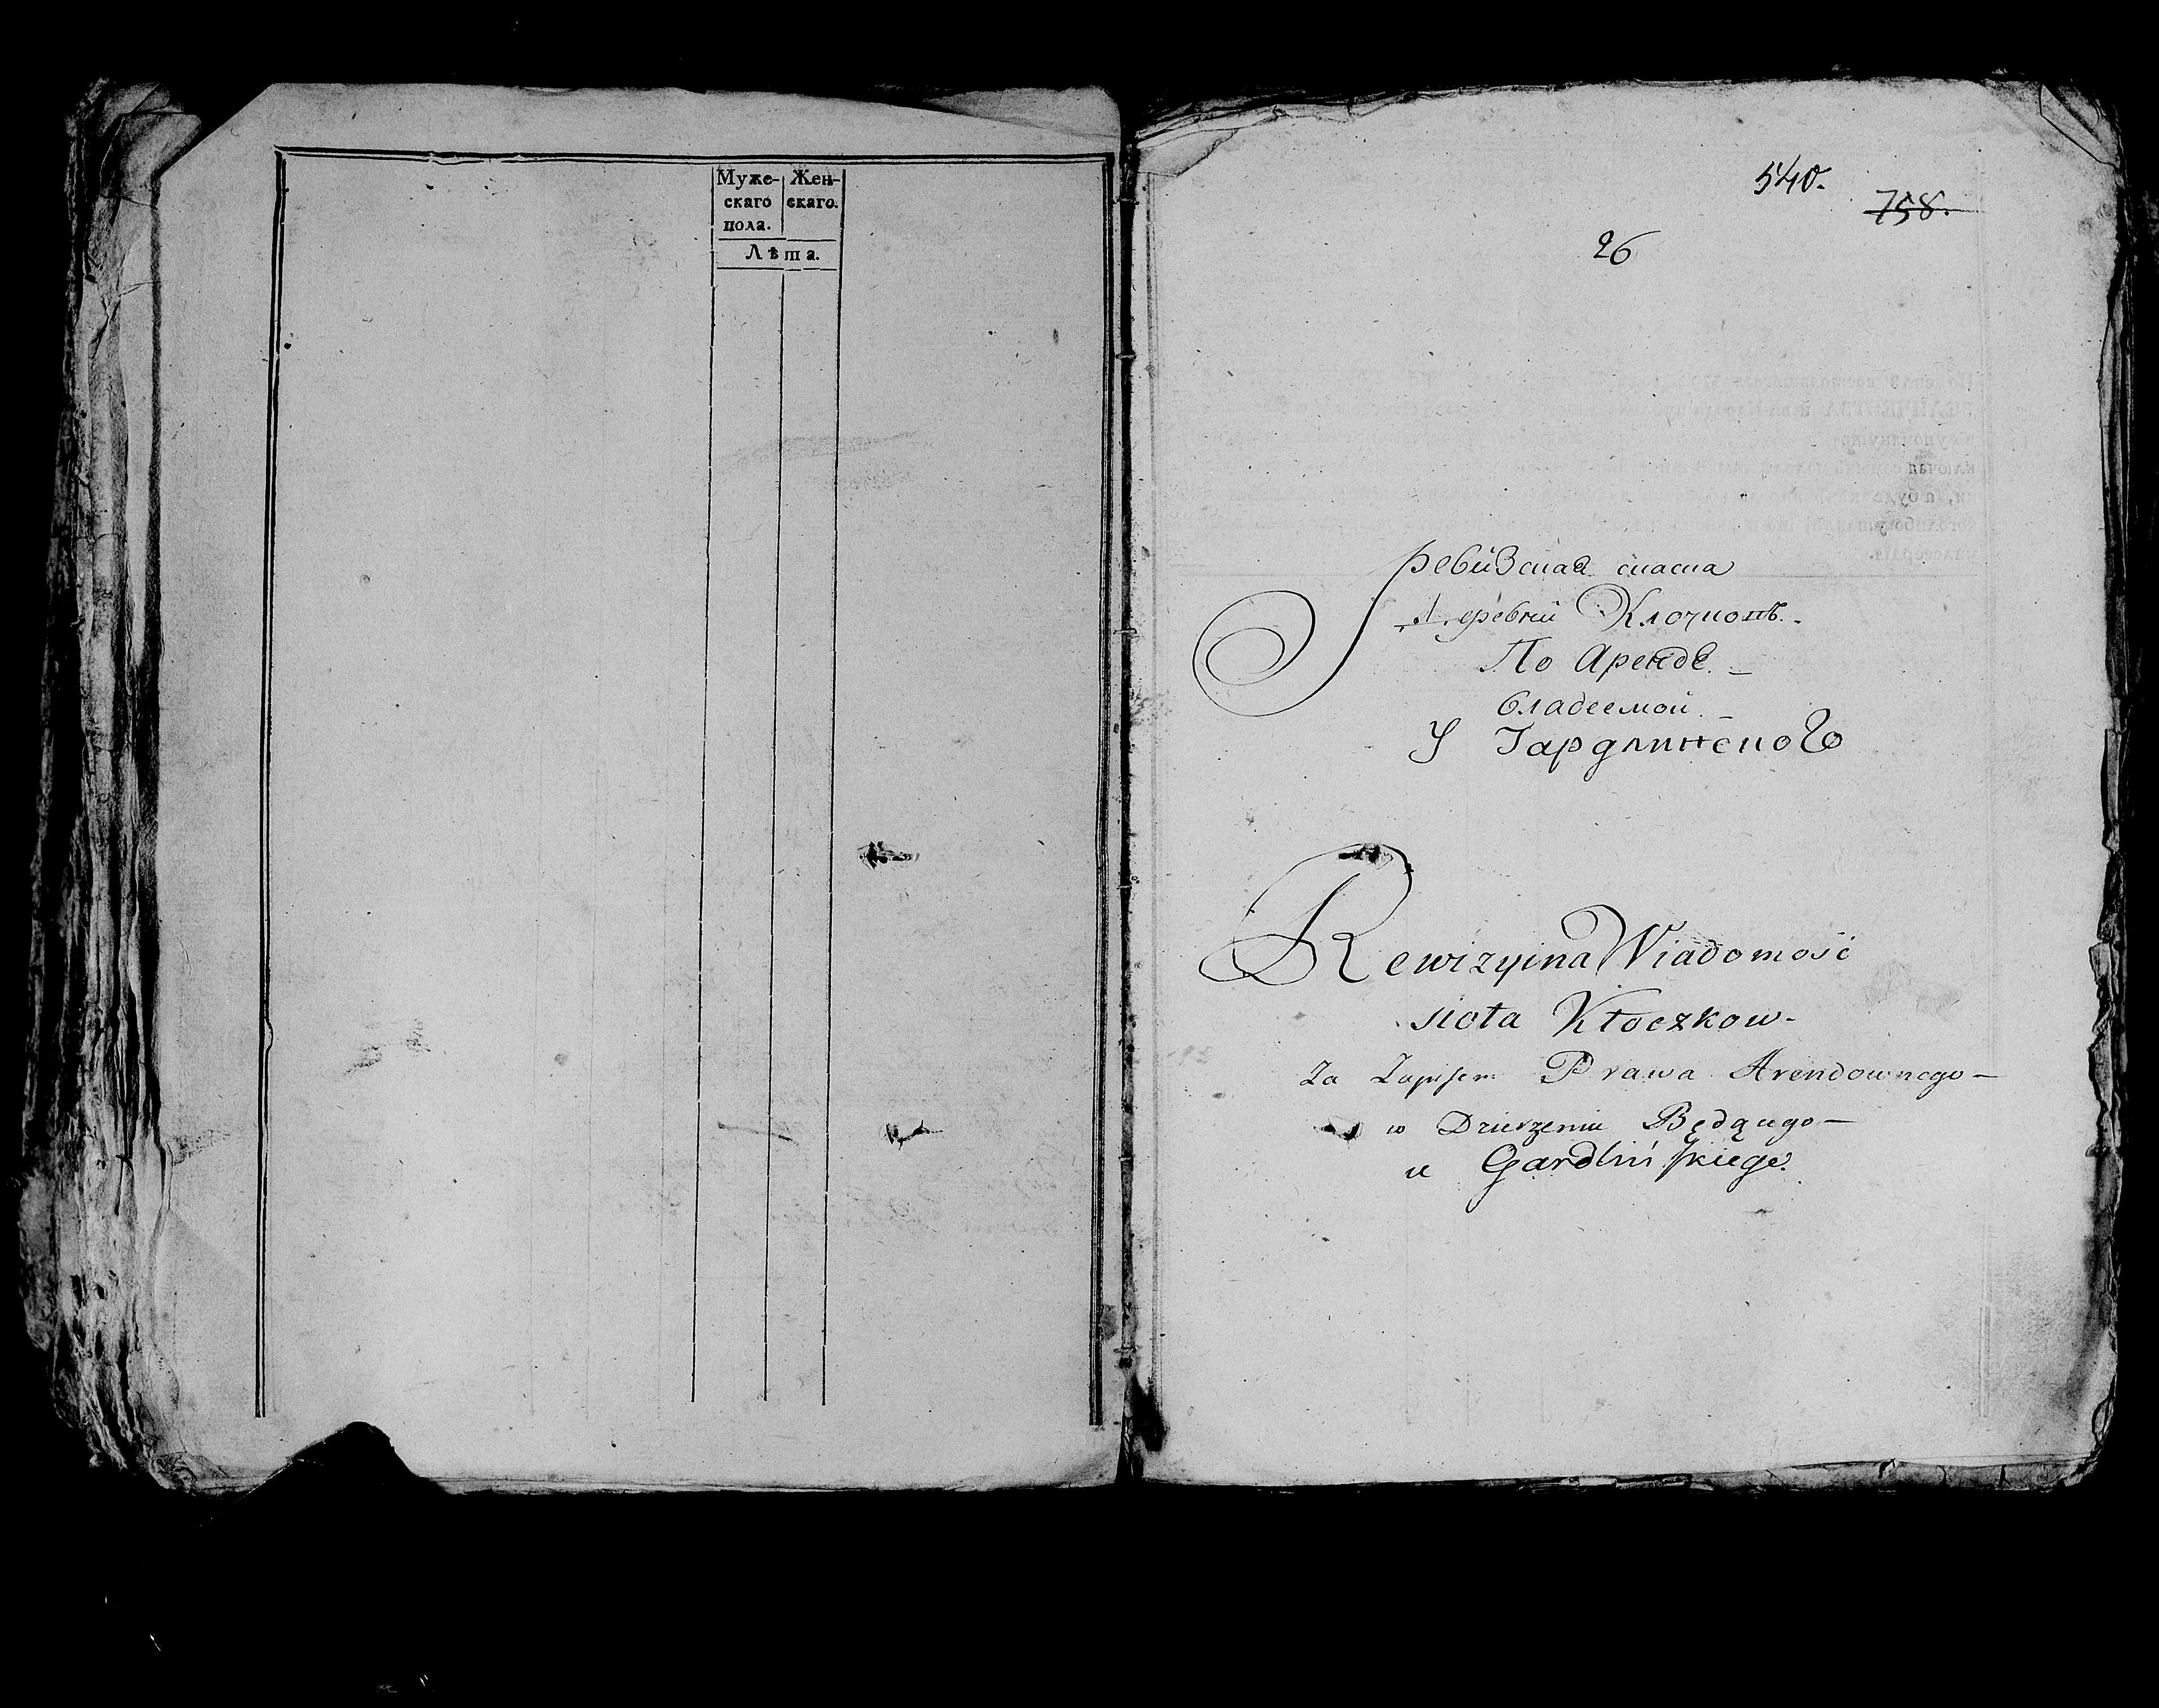 Муже- Жен-
скаго скаго.
пола.
Лѣта.
540.
758.
26
Ревизская скаска
деревни Клочковъ.
По Аренде.
владеемой
У Гардлинского
Rewizyina Wiadomość
siola Kłoczkow-
Za Zapisem Prawa Arendownego-
w Dzierzeniu Będącego-
u Gardlińskiego.